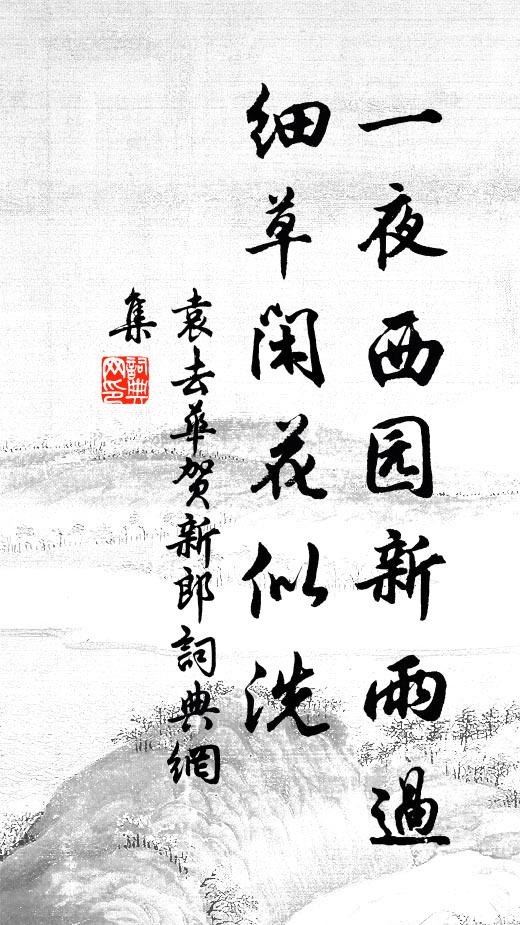 一夜西园新雨過
细草闲花似洗
袁去華贺新郎詞典網
集
詞典網印